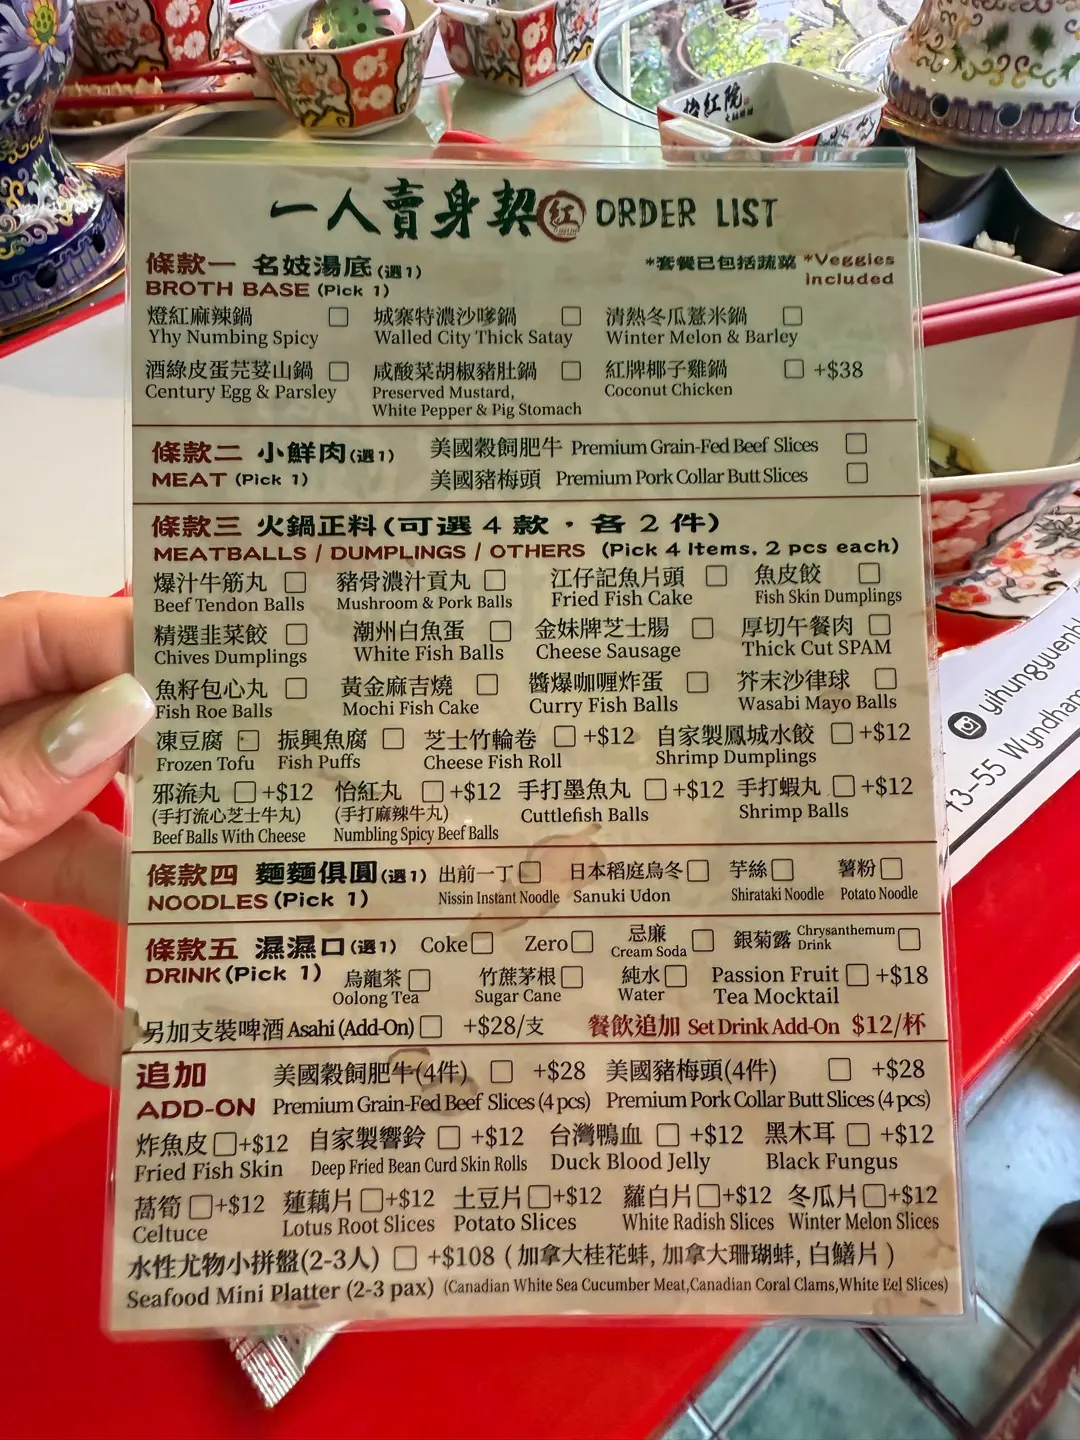 怡紅院
一人賣身契 紅 ORDER LIST
條款一 名妓湯底(選1)
BROTH BASE (Pick 1)
*套餐已包括蔬菜 *Veggies included
燈紅麻辣鍋 □ 城寨特濃沙嗲鍋 □ 清熱冬瓜薏米鍋 □
Yhy Numbing Spicy Walled City Thick Satay Winter Melon & Barley
酒綠皮蛋芫荽山鍋 □ 咸酸菜胡椒豬肚鍋 □ 紅牌椰子雞鍋 □ +$38
Century Egg & Parsley Preserved Mustard, Coconut Chicken
White Pepper & Pig Stomach
條款二 小鮮肉(選1) 美國穀飼肥牛 Premium Grain-Fed Beef Slices □
MEAT (Pick 1) 美國豬梅頭 Premium Pork Collar Butt Slices □
條款三 火鍋正料(可選 4 款，各 2 件)
MEATBALLS / DUMPLINGS / OTHERS (Pick 4 Items, 2 pcs each)
爆汁牛筋丸 □ 豬骨濃汁貢丸 □ 江仔記魚片頭 □ 魚皮餃 □
Beef Tendon Balls Mushroom & Pork Balls Fried Fish Cake Fish Skin Dumplings
精選韭菜餃 □ 潮州白魚蛋 □ 金妹牌芝士腸 □ 厚切午餐肉 □
Chives Dumplings White Fish Balls Cheese Sausage Thick Cut SPAM
魚籽包心丸 □ 黃金麻吉燒 □ 醬爆咖喱炸蛋 □ 芥末沙律球 □
Fish Roe Balls Mochi Fish Cake Curry Fish Balls Wasabi Mayo Balls
凍豆腐 □ 振興魚腐 □ 芝士竹輪卷 □ +$12 自家製鳳城水餃 □ +$12
Frozen Tofu Fish Puffs Cheese Fish Roll Shrimp Dumplings
邪流丸 □ +$12 怡紅丸 □ +$12 手打墨魚丸 □ +$12 手打蝦丸 □ +$12
(手打流心芝士牛丸) (手打麻辣牛丸) Cuttlefish Balls Shrimp Balls
Beef Balls With Cheese Numbling Spicy Beef Balls
條款四 麵麵俱圓(選1) 出前一丁 □ 日本稻庭烏冬 □ 芋絲 □ 薯粉 □
NOODLES (Pick 1) Nissin Instant Noodle Sanuki Udon Shirataki Noodle Potato Noodle
條款五 濕濕口(選1) Coke □ Zero □ 忌廉 Cream Soda □ 銀菊露 Chrysanthemum Drink □
DRINK (Pick 1) 烏龍茶 □ 竹蔗茅根 □ 純水 □ Passion Fruit □ +$18
Oolong Tea Sugar Cane Water Tea Mocktail
另加支裝啤酒 Asahi (Add-On) □ +$28/支 餐飲追加 Set Drink Add-On $12/杯
追加 美國穀飼肥牛(4件) □ +$28 美國豬梅頭(4件) □ +$28
ADD-ON Premium Grain-Fed Beef Slices (4 pcs) Premium Pork Collar Butt Slices (4 pcs)
炸魚皮 □ +$12 自家製響鈴 □ +$12 台灣鴨血 □ +$12 黑木耳 □ +$12
Fried Fish Skin Deep Fried Bean Curd Skin Rolls Duck Blood Jelly Black Fungus
萵筍 □ +$12 蓮藕片 □ +$12 土豆片 □ +$12 蘿白片 □ +$12 冬瓜片 □ +$12
Celtuce Lotus Root Slices Potato Slices White Radish Slices Winter Melon Slices
水性尤物小拼盤(2-3人) □ +$108 ( 加拿大桂花蚌, 加拿大珊瑚蚌, 白鱔片 )
Seafood Mini Platter (2-3 pax) (Canadian White Sea Cucumber Meat,Canadian Coral Clams,White Eel Slices)
13-55 Wyndham